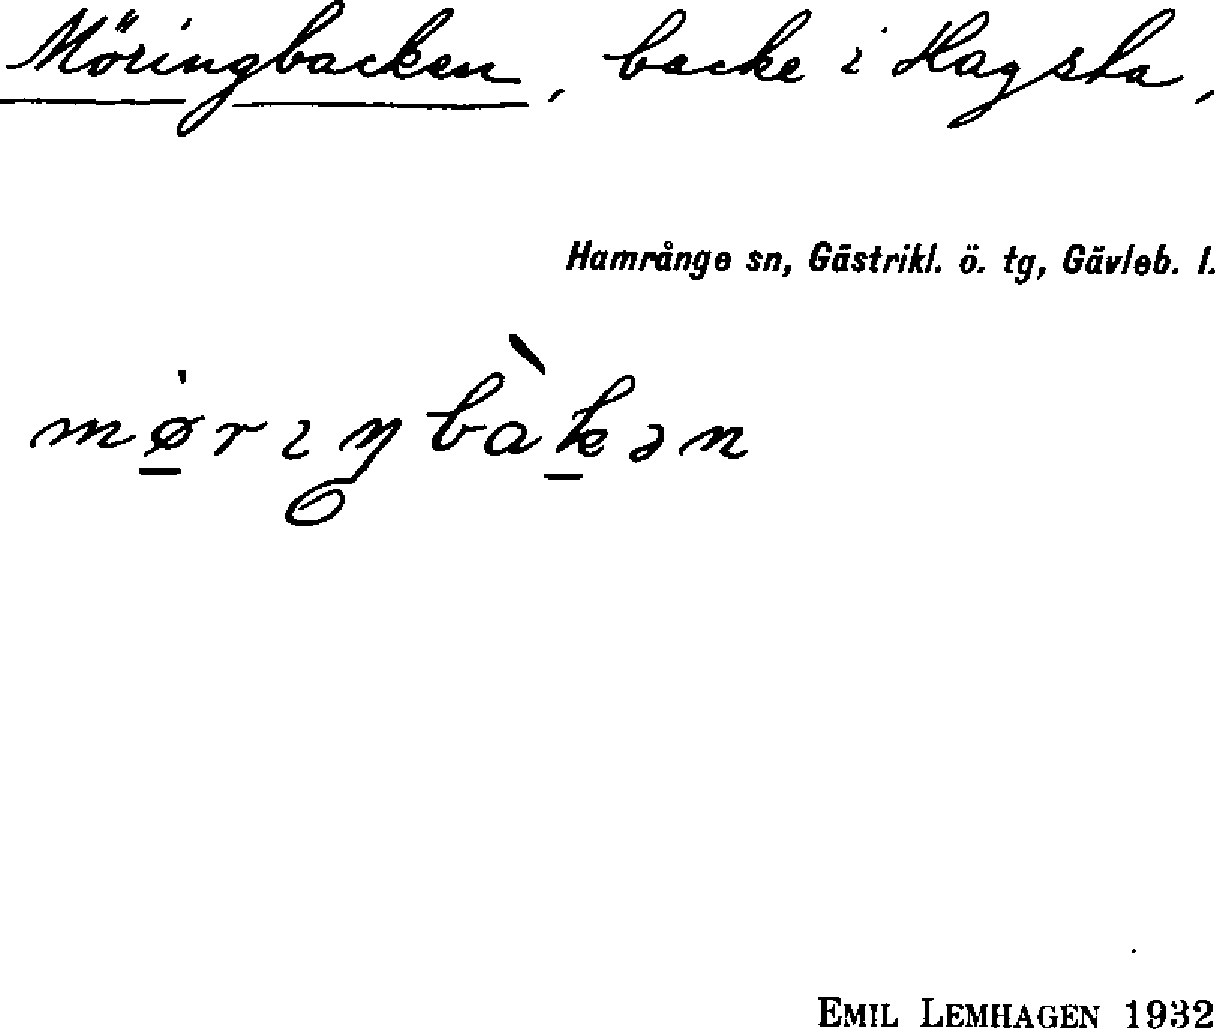 Möringbacken, backe i Hagsta,
Hamrånge sn, Gästrikl. ö. tg, Gävleb. l.
mǿ̲rıŋbàk̲ən
EMIL LEMHAGEN 1932